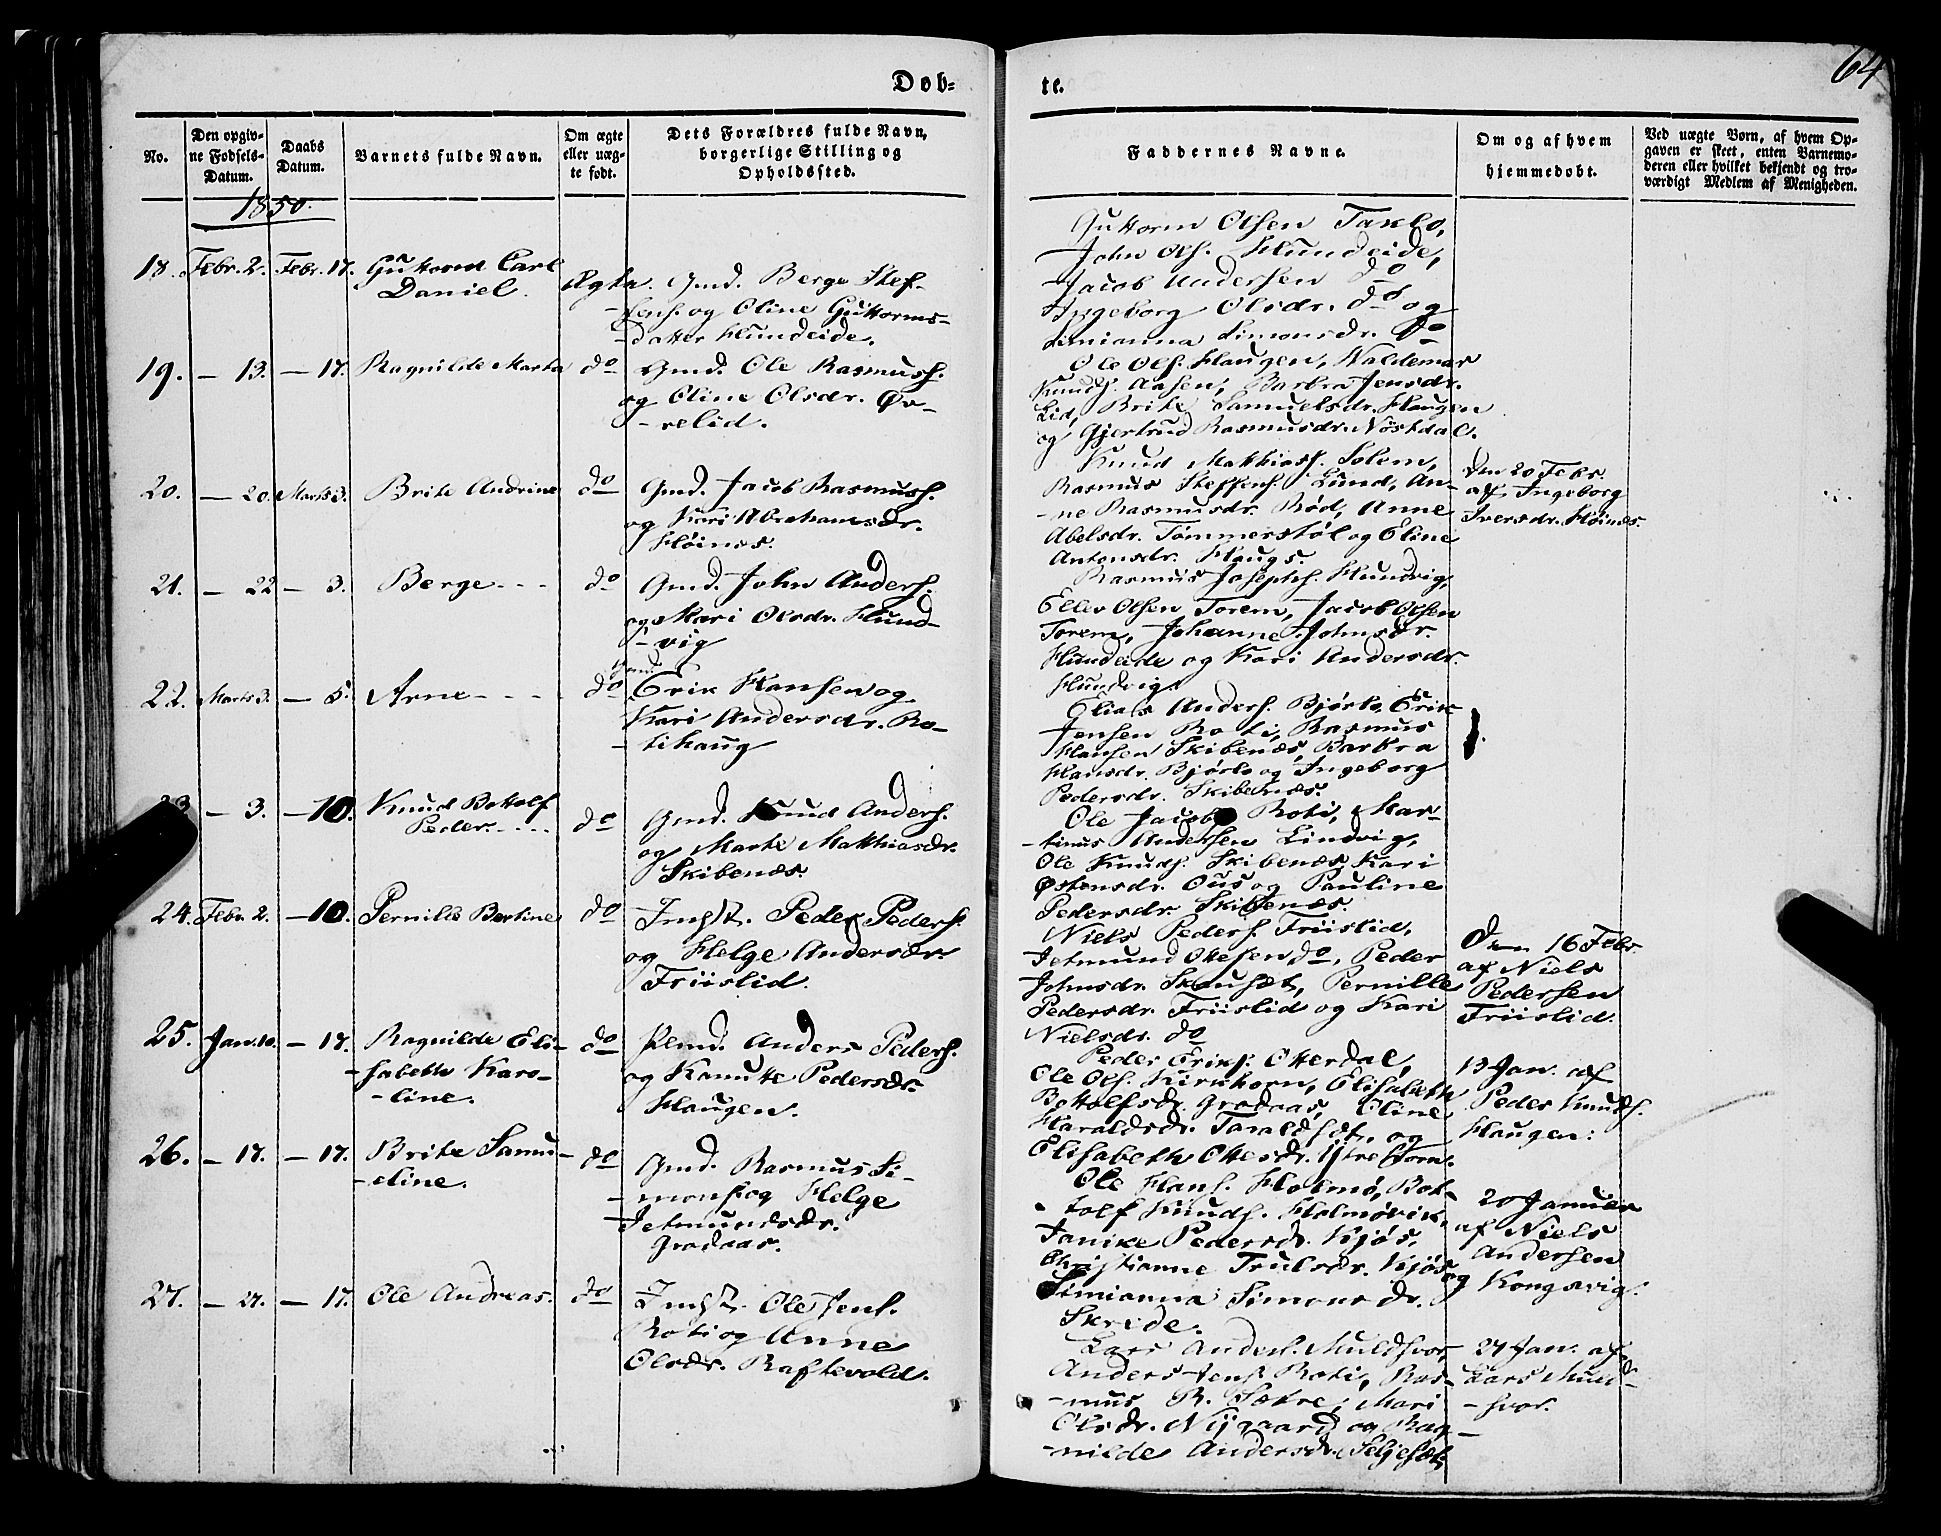 Døb-
te.
64
No.
Den opgiv-
ne Fødsels-
Datum.
Daabs
Datum.
Barnets fulde Navn.
Om ægte
eller uæg-
te født.
Dets Forældres fulde Navn,
borgerlige Stilling og
Opholdssted.
Faddernes Navne.
Om og af hvem
hjemmedøbt.
Ved uægte Børn, af hvem Op-
gaven er skeet, enten Barnemo-
deren eller hvilket bekjendt og tro-
værdigt Medlem af Menigheden.
1850.
18. Febr. 2. Febr. 17. Guttorm Carl
Daniel.
Ægte. Gmd. Berge Stef-
-fens. og Oline Guttorms-
-datter Hundeide.
Guttorm Olsen Taklo,
John Ols. Hundeide,
Jacob Andersen do
Ingeborg Olsdr. do og
Simianna Simonsdr. do
19. - 13. - 17. Ragnilde Marta do Gmd. Ole Rasmuss.
og Oline Olsdr. Øv-
-relid.
Ole Ols. Haugen, Waldemar
Knuds. Aasen, Barbra Jensdr.
Lid, Brite Samuelsdr. Haugen
og Gjertrud Rasmusdr. Nøstdal.
20. - 20. Marts 3. Brite Andrine do Gmd. Jacob Rasmuss.
og Kari Abrahamsdr.
Høines.
Knud Matthiass. Solem,
Rasmus Steffens. Lund, An-
-ne Rasmusdr. Rød, Anne
Abelsdr. Tømmerstøl og Eline
Antonsdr. Haugs.
den 20 Febr.
af Ingeborg
Iversdr. Høines.
21. - 22 - 3. Berge - - - do Gmd. John Anders.
og Mari Olsdr. Hund-
-vig
Rasmus Josephs. Hundvig,
Ellev Olsen Torem, Jacob Olsen
Torem, Johanne Johnsdr.
Hundeide og Kari Andersdr.
Hundvig.
22. Marts 3. - 5. Arne - - - - do Gmd.
Erik Hansen og
Kari Andersdr. Ro-
-tihaug
Elias Anders. Bjørlo, Erik
Jensen Roti, Rasmus
Hansen Skibenæs, Barbra
Hansdr. Bjørlo og Ingeborg
Pedersdr. Skibenæs.
23 - 3. - 10. Knud Bottolf
Peder. - - - -
do Gmd. Knud Anders.
og Marte Matthiasdr.
Skibenæs.
Ole Jacobs. Roti, Mar-
-tinus Andersen Lindvig,
Ole Knuds. Skibenæs, Kari
Østensdr. Ous og Pauline
Pedersdr. Skibenæs.
24. Febr. 2. - 10. Pernille Bertine do Indst. Peder Peders.
og Helge Andersdr.
Friislid.
Niels Peders. Friislid,
Jetmund Ottesen do, Peder
Johnsdr. Skousæt, Pernille
Pedersdr. Friislid og Kari
Nielsdr. do
Den 16 Febr.
af Niels
Pedersen
Friislid.
25. Jan. 10. - 17. Ragnilde Eli-
-sabeth Karo-
-line.
do Plmd. Anders Peders.
og Kanutte Pedersdr.
Haugen.
Peder Eriks. Otterdal,
Ole Ols. Kirkhorn, Elisabeth
Bottolfsdr. Grodaas, Oline
Haraldsdr. Taraldsæt, og
Elisabeth Ottersdr. Ytrehorn.
13 Jan. af
Peder Knuds.
Haugen:
26. - 17. - 17. Brite Samu-
-eline.
do Gmd. Rasmus Si-
-mons. og Helge
Jetmundsdr.
Grodaas.
Ole Hans. Holmø, Bot-
tolf Knuds. Holmøvik,
Janike Pedersdr. Kjøs,
Christianne Trulsdr. Kjøs og
Simianna Simonsdr.
Skride.
20 Januar
af Niels
Andersen
Kongsvig.
27. - 27. - 17. Ole Andreas. do Indst. Ole Jens.
Roti og Anne
Olsdr. Raftevold.
Lars Anders. Muldsvor,
Anders Jens. Roti, Ras-
-mus R. Sætre, Mari
Olsdr. Nygaard og Rag-
-nilde Andersdr. Seljesæt.
27 Jan. af
Lars Muld-
-svor.